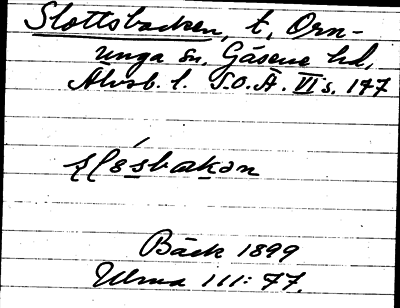 Slottsbacken, t, Orn-
unga sn. Gäsene hd,
Älvsb. l. S.O.Ä. VI s. 177
slósbakən
Bäck 1899
Ulma 111:77.